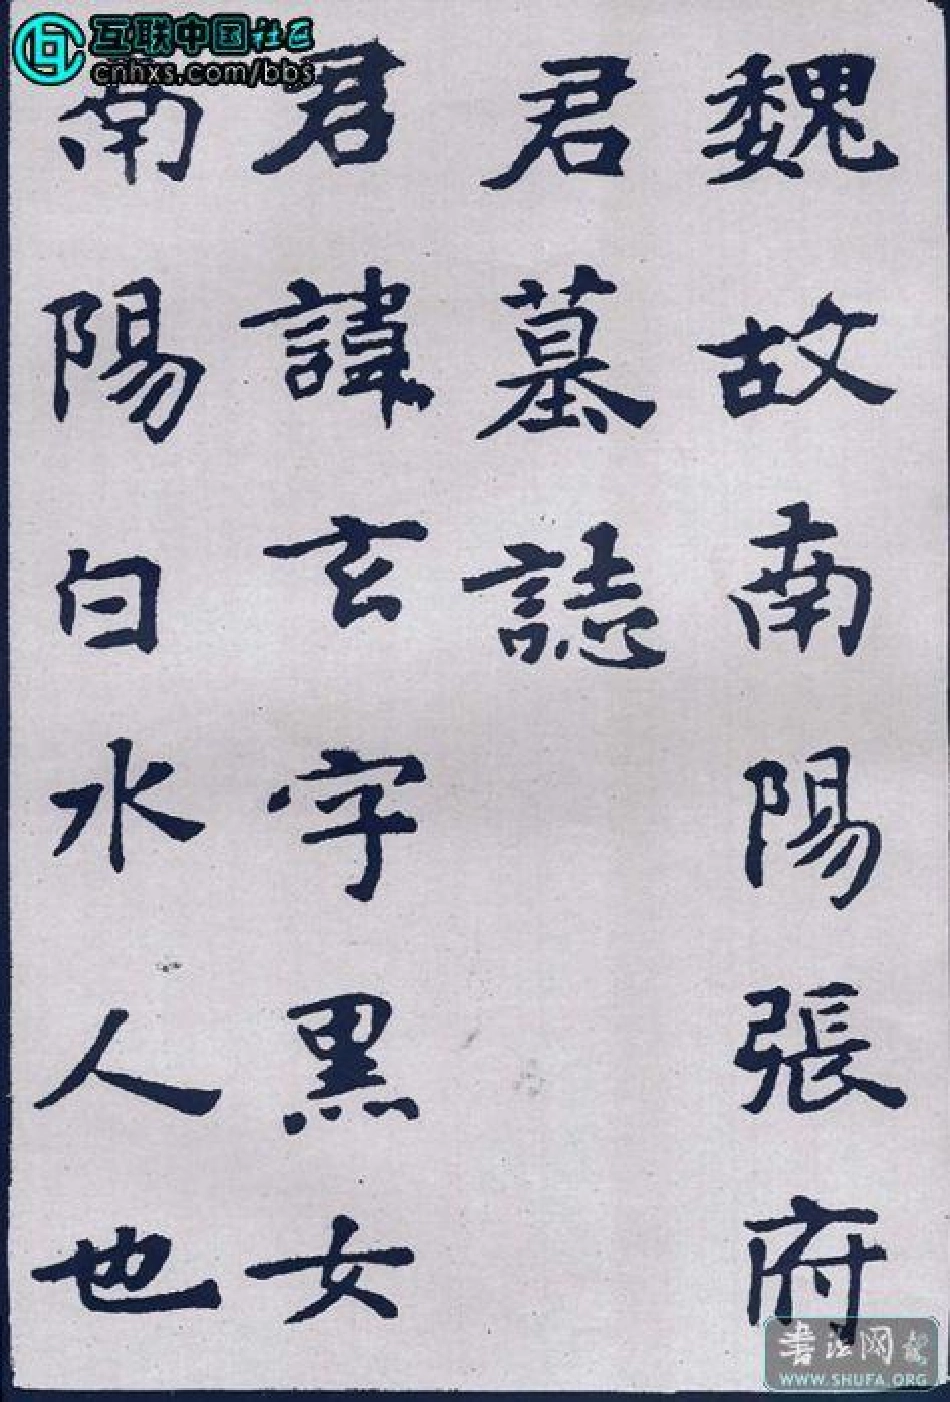 魏故南陽張府
君墓誌
君諱玄字黑女
南陽白水人也
互联中国社区
cnhxs.com/bbs
书法网
WWW.SHUFA.ORG